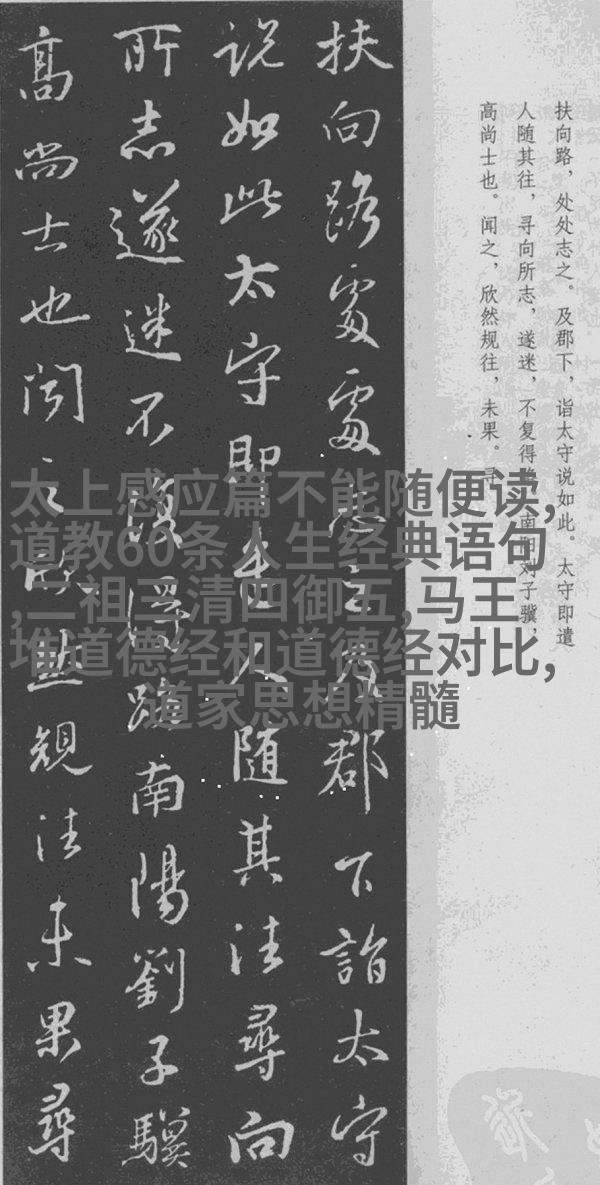 扶向路，处处志之。及郡下，诣太守说如此。太守即遣
人随其往，寻向所志，遂迷，不复得路。南阳刘子骥，
高尚士也。闻之，欣然规往，未果。寻
扶向路處處志之及郡下詣太守
説如此太守即遣人随其往尋向
所志遂迷不復得路南陽劉子驥
高尚士也聞之欣然規往未果尋
太上感应篇不能随便读,
道教60条人生经典语句
,一祖三清四御五,马王
堆道德经和道德经对比,
道家思想精髓